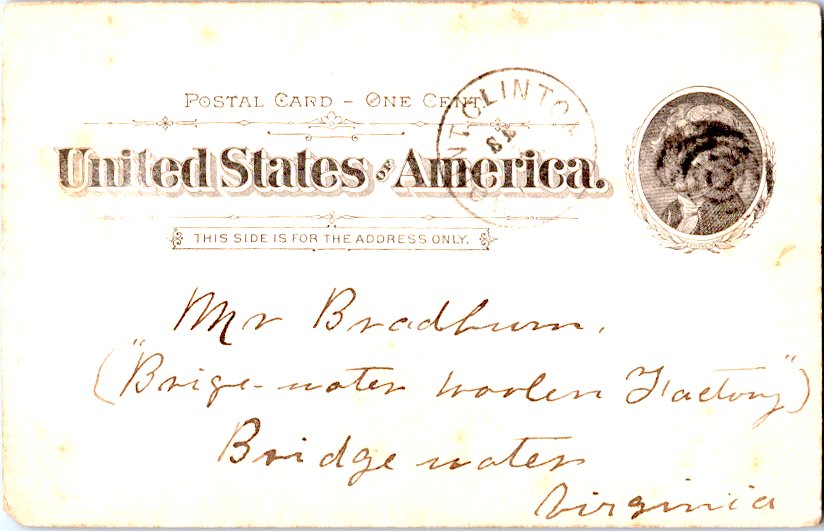 POSTAL CARD – ONE CENT.
United States OF America.
THIS SIDE IS FOR THE ADDRESS ONLY.
NT CLINTO
13
Mr Bradburn.
("Brige-water woolen Factory")
Bridgewater
Virginia